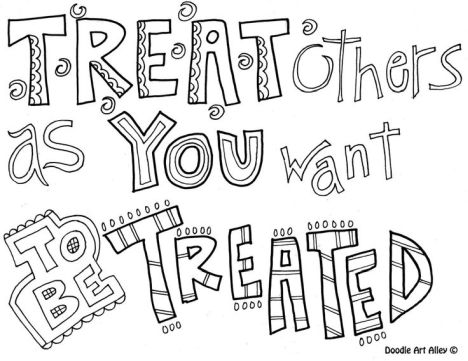 TREAT others
as YOU want
TO BE TREATED
Doodle Art Alley ©